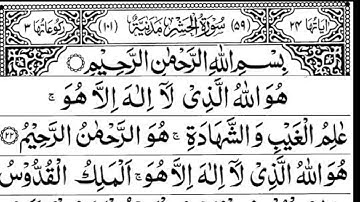 اٰيَاتُهَا ٢٤ (٥٩) سُوْرَةُ الْحَشْرِ مَدَنِيَّةٌ (١٠١) رُكُوْعَاتُهَا ٣
بِسْمِ اللّٰهِ الرَّحْمٰنِ الرَّحِيْمِ
هُوَ اللّٰهُ الَّذِيْ لَآ اِلٰهَ اِلَّا هُوَ ۚ
عٰلِمُ الْغَيْبِ وَالشَّهَادَةِ ۚ هُوَ الرَّحْمٰنُ الرَّحِيْمُ ٢٢
هُوَ اللّٰهُ الَّذِيْ لَآ اِلٰهَ اِلَّا هُوَ ۚ اَلْمَلِكُ الْقُدُّوْسُ